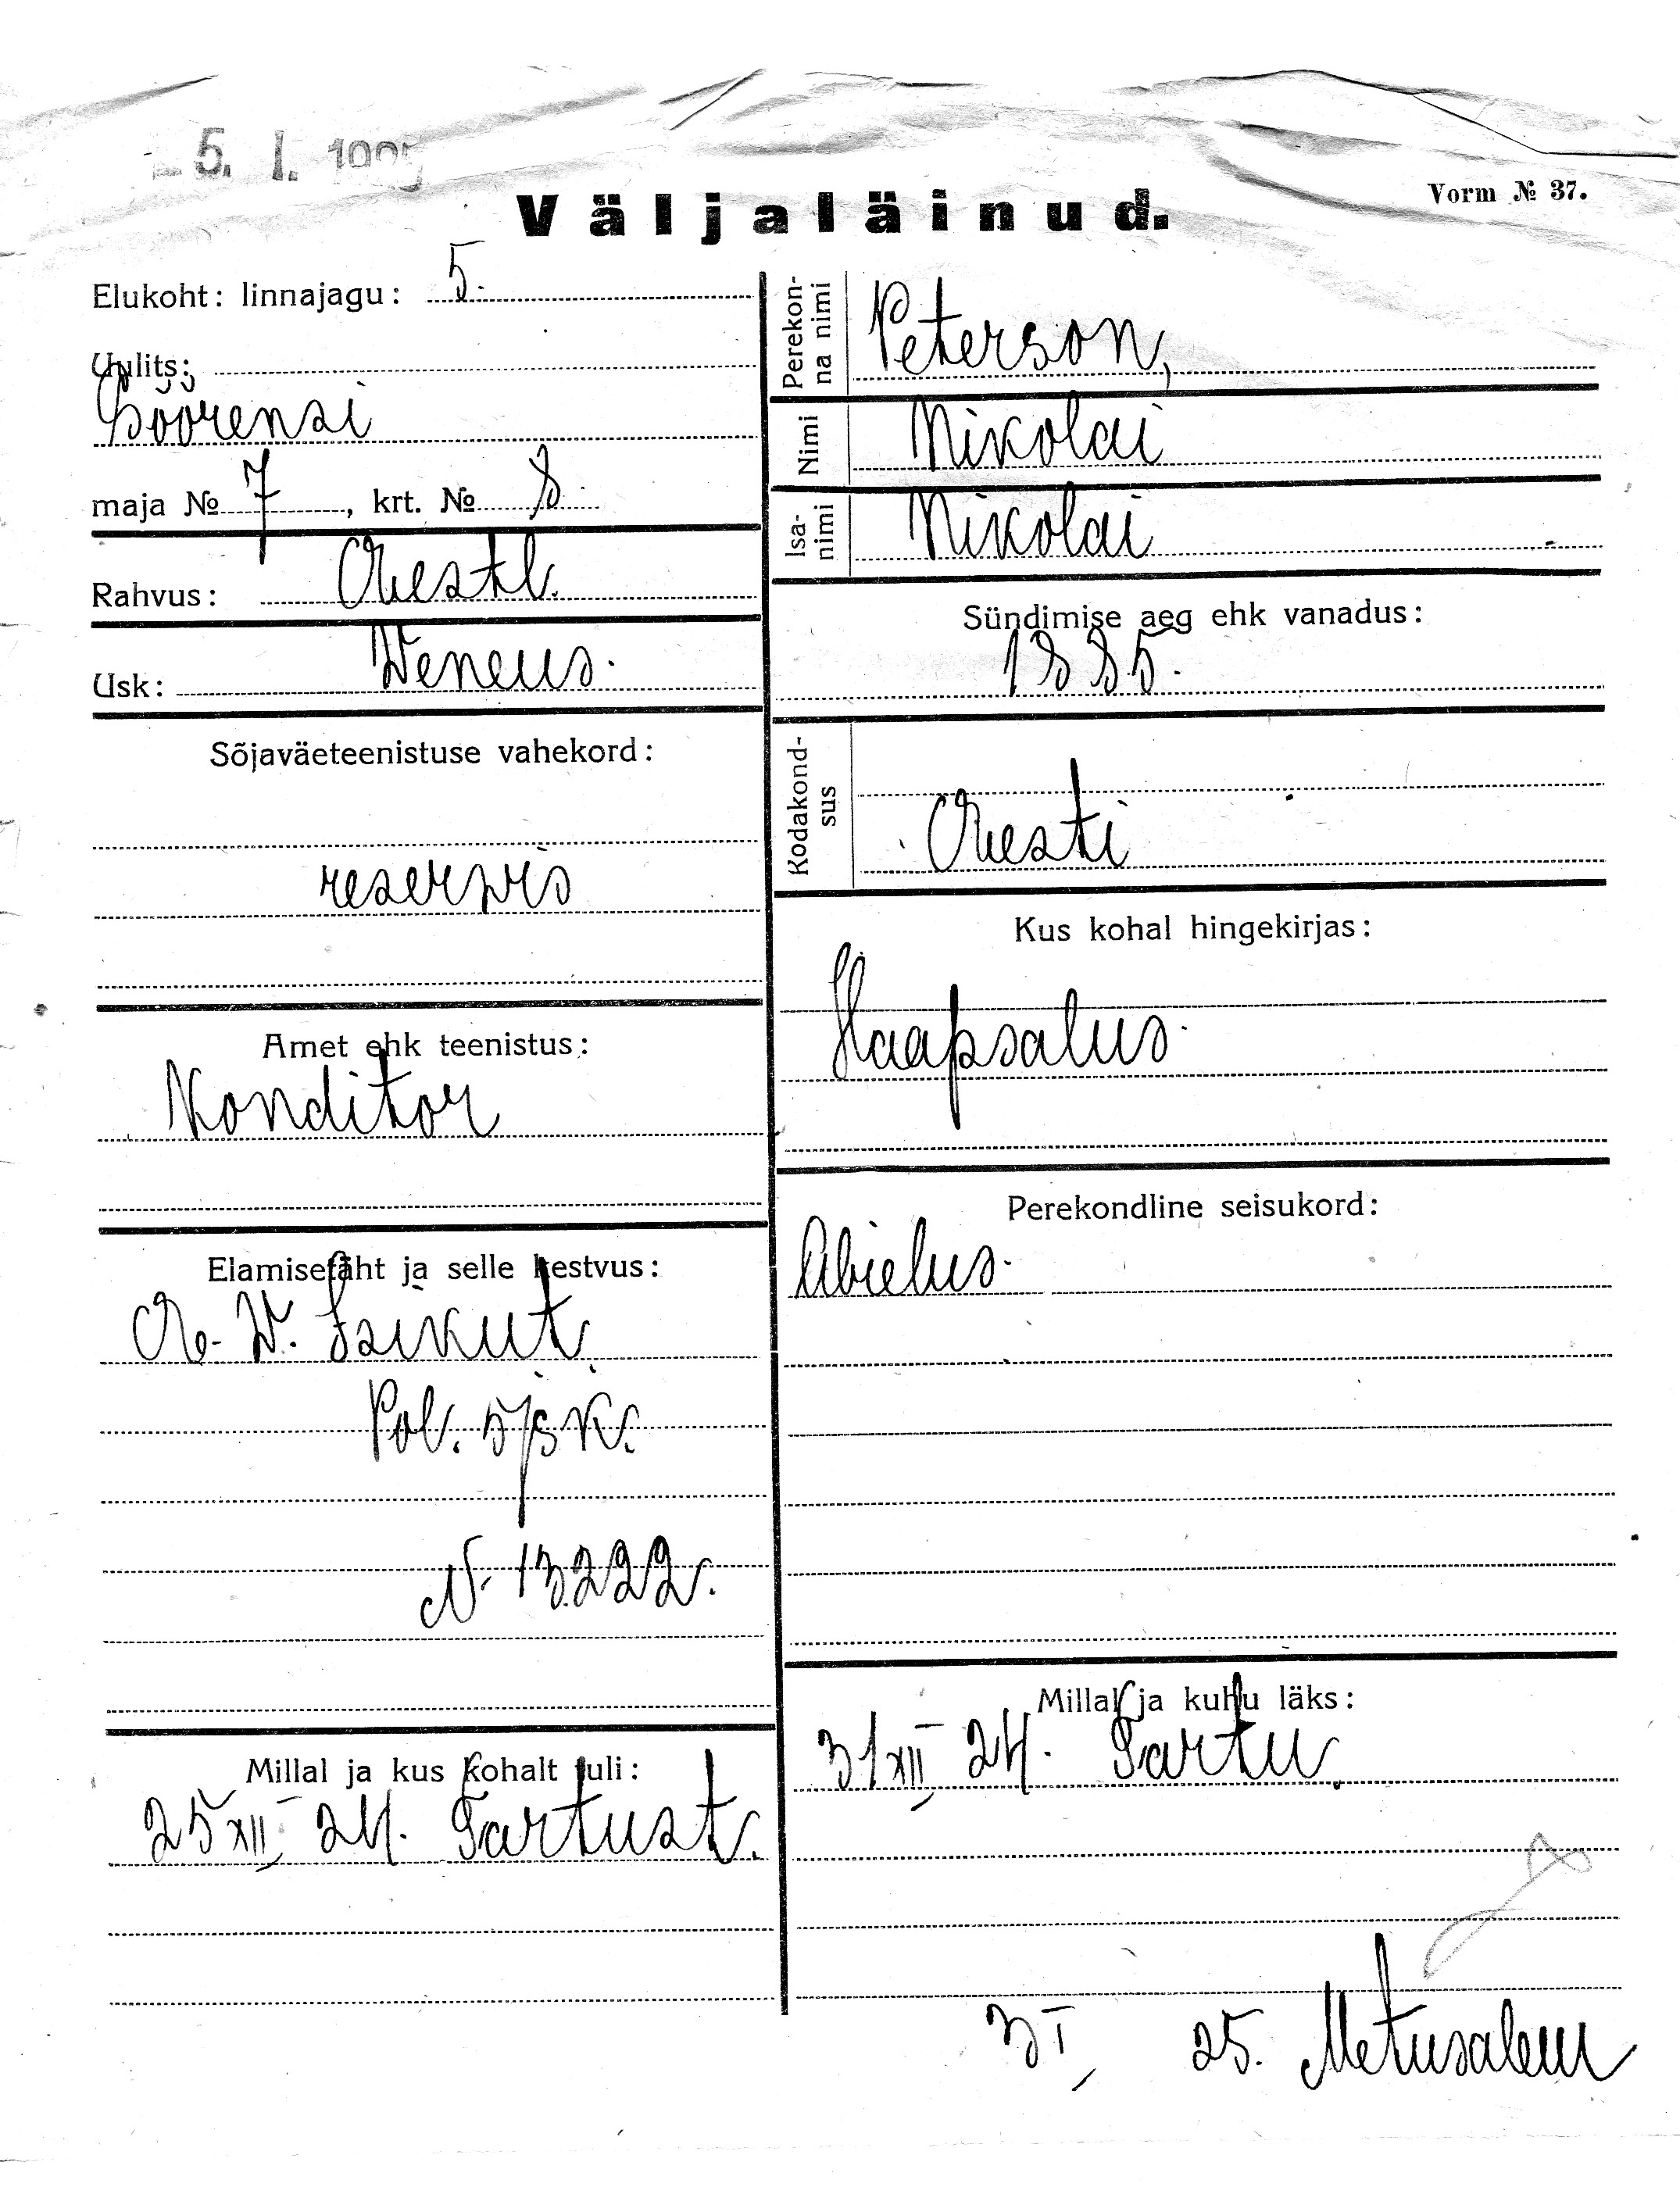 5. I. 1925
Väljaläinud.
Vorm № 37.
Elukoht: linnajagu: 5.
Uulits:
Söörensi
maja № 7, krt. № 8.
Rahvus: Eestl.
Usk: Weneus.
Sõjaväeteenistuse vahekord:
reserwis
Amet ehk teenistus:
Konditor
Elamisetäht ja selle kestvus:
E. W. Isikut.
Pol. 5/jsk.
N. 13222.
Millal ja kus kohalt tuli:
25 XII 24. Tartust.
Perekonna nimi Peterson,
Nimi Nikolai
Isanimi Nikolai
Sündimise aeg ehk vanadus:
1885.
Kodakondsus Eesti
Kus kohal hingekirjas:
Haapsalus.
Perekondline seisukord:
Abielus.
Millal ja kuhu läks:
31 XII 24. Tartu.
3 I 25. Metusalem